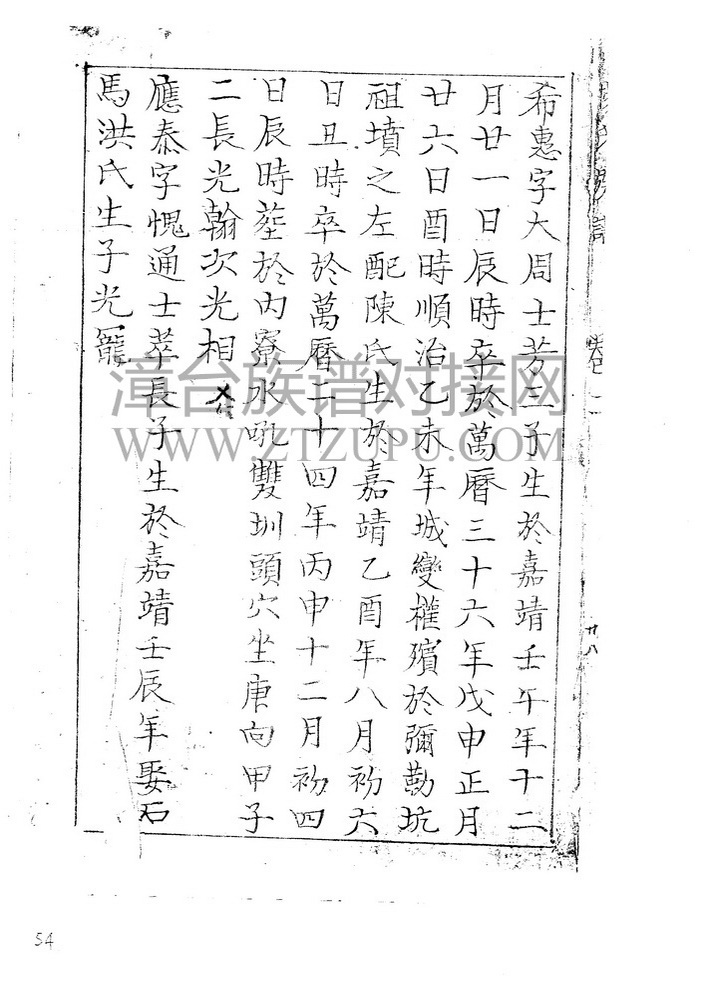 希惠字大周士芳三子生於嘉靖壬午年十二
月廿一日辰時卒於萬曆三十六年戊申正月
廿六日酉時順治乙未年城變權殯於彌勒坑
祖墳之左配陳氏生於嘉靖乙酉年八月初六
日丑時卒於萬曆二十四年丙申十二月初四
日辰時塟於內寮水吼雙圳頭穴坐庚向甲子
二長光翰次光相
應泰字愧通士萃長子生於嘉靖壬辰年娶石
馬洪氏生子光寵
廿八
漳台族谱对接网
WWW.ZTZUPU.COM
54